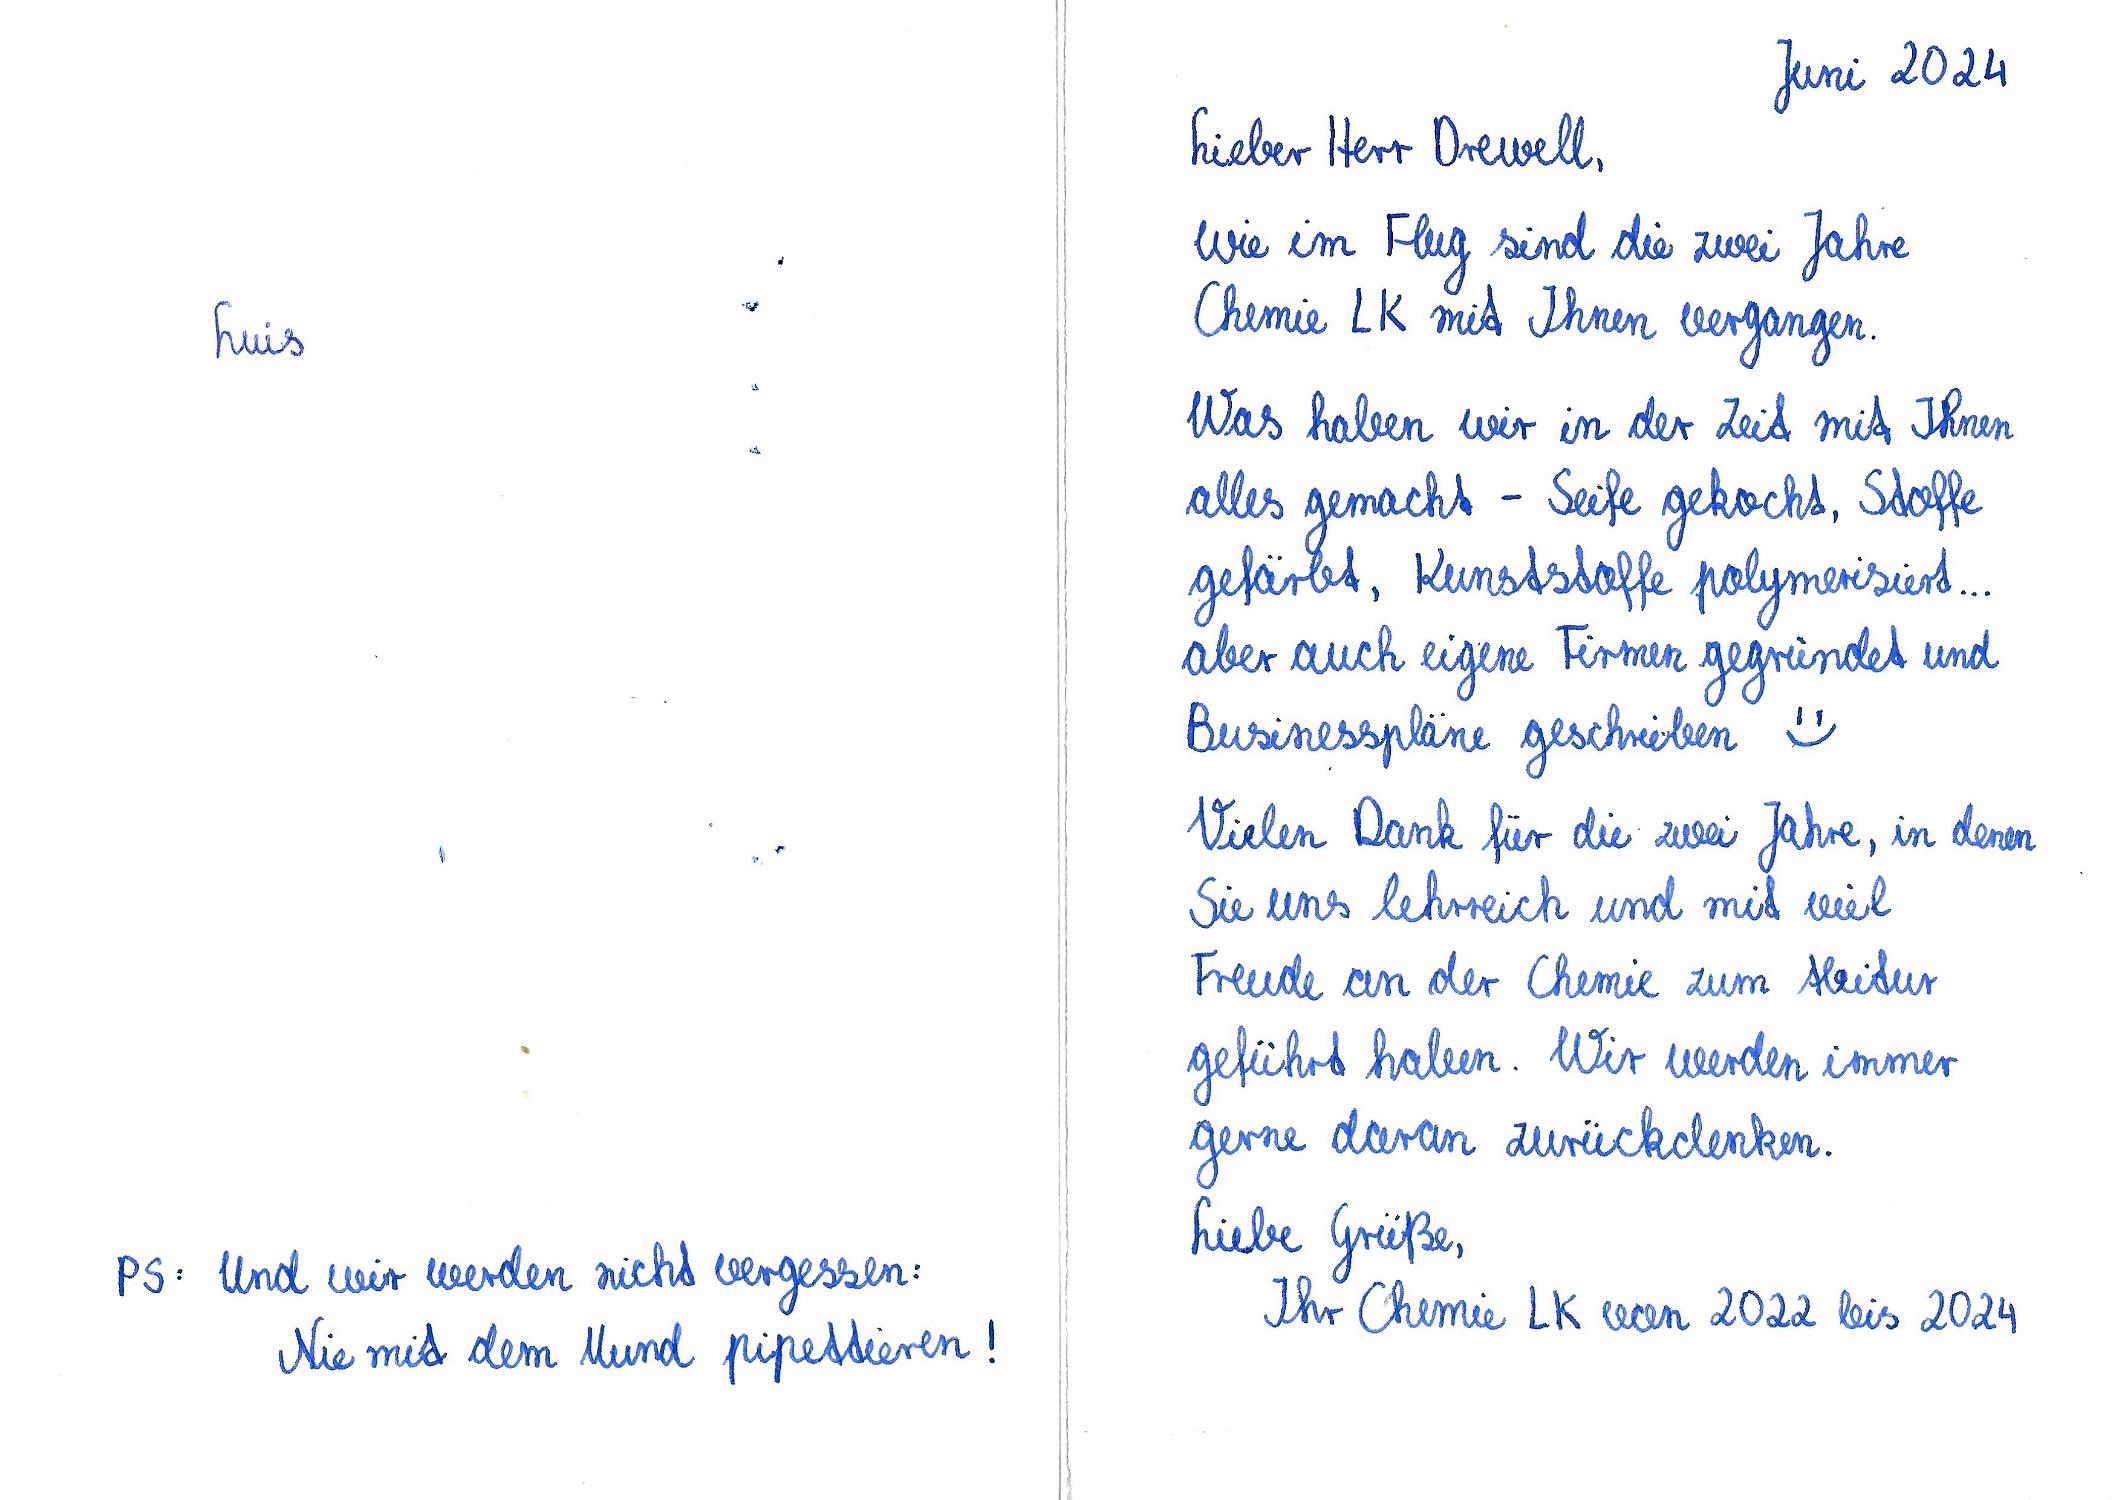 Luis
PS: Und wir werden nicht vergessen:
Nie mit dem Mund pipettieren!
Juni 2024
Lieber Herr Drewell,
wie im Flug sind die zwei Jahre
Chemie LK mit Ihnen vergangen.
Was haben wir in der Zeit mit Ihnen
alles gemacht - Seife gekocht, Stoffe
gefärbt, Kunststoffe polymerisiert...
aber auch eigene Firmen gegründet und
Businesspläne geschrieben
Vielen Dank für die zwei Jahre, in denen
Sie uns lehrreich und mit viel
Freude an der Chemie zum Abitur
geführt haben. Wir werden immer
gerne daran zurückdenken.
Liebe Grüße,
Ihr Chemie LK von 2022 bis 2024